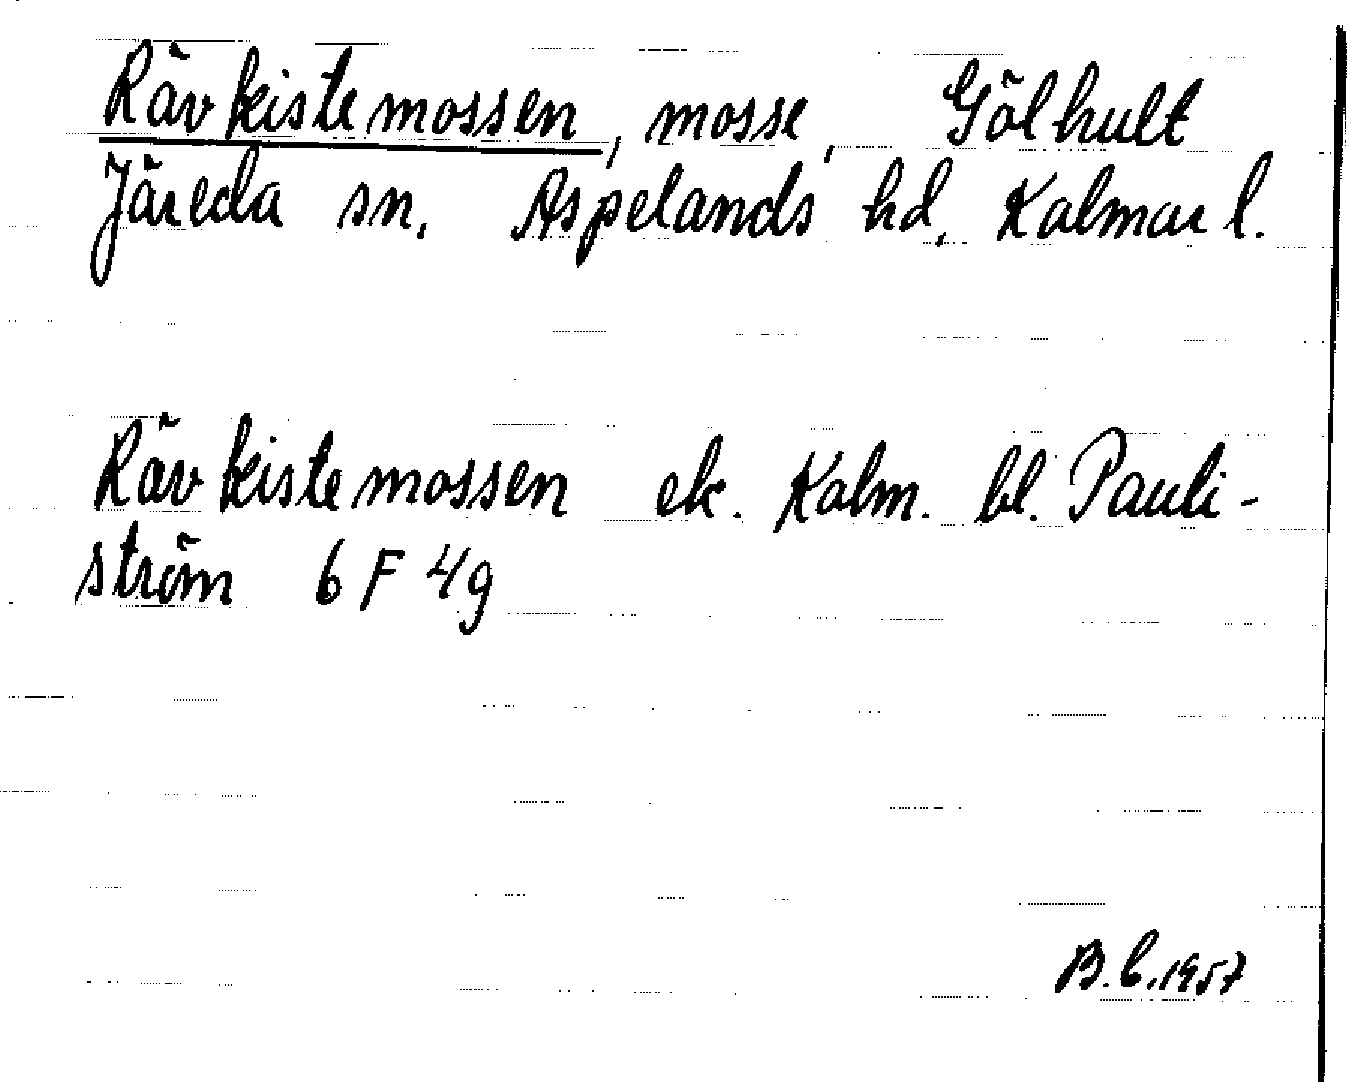 Rävkistemossen, mosse, Gölhult
Järeda sn. Aspelands hd, Kalmar l.
Rävkistemossen ek. Kalm. bl. Pauli-
ström 6 F 4g
B.b.1957